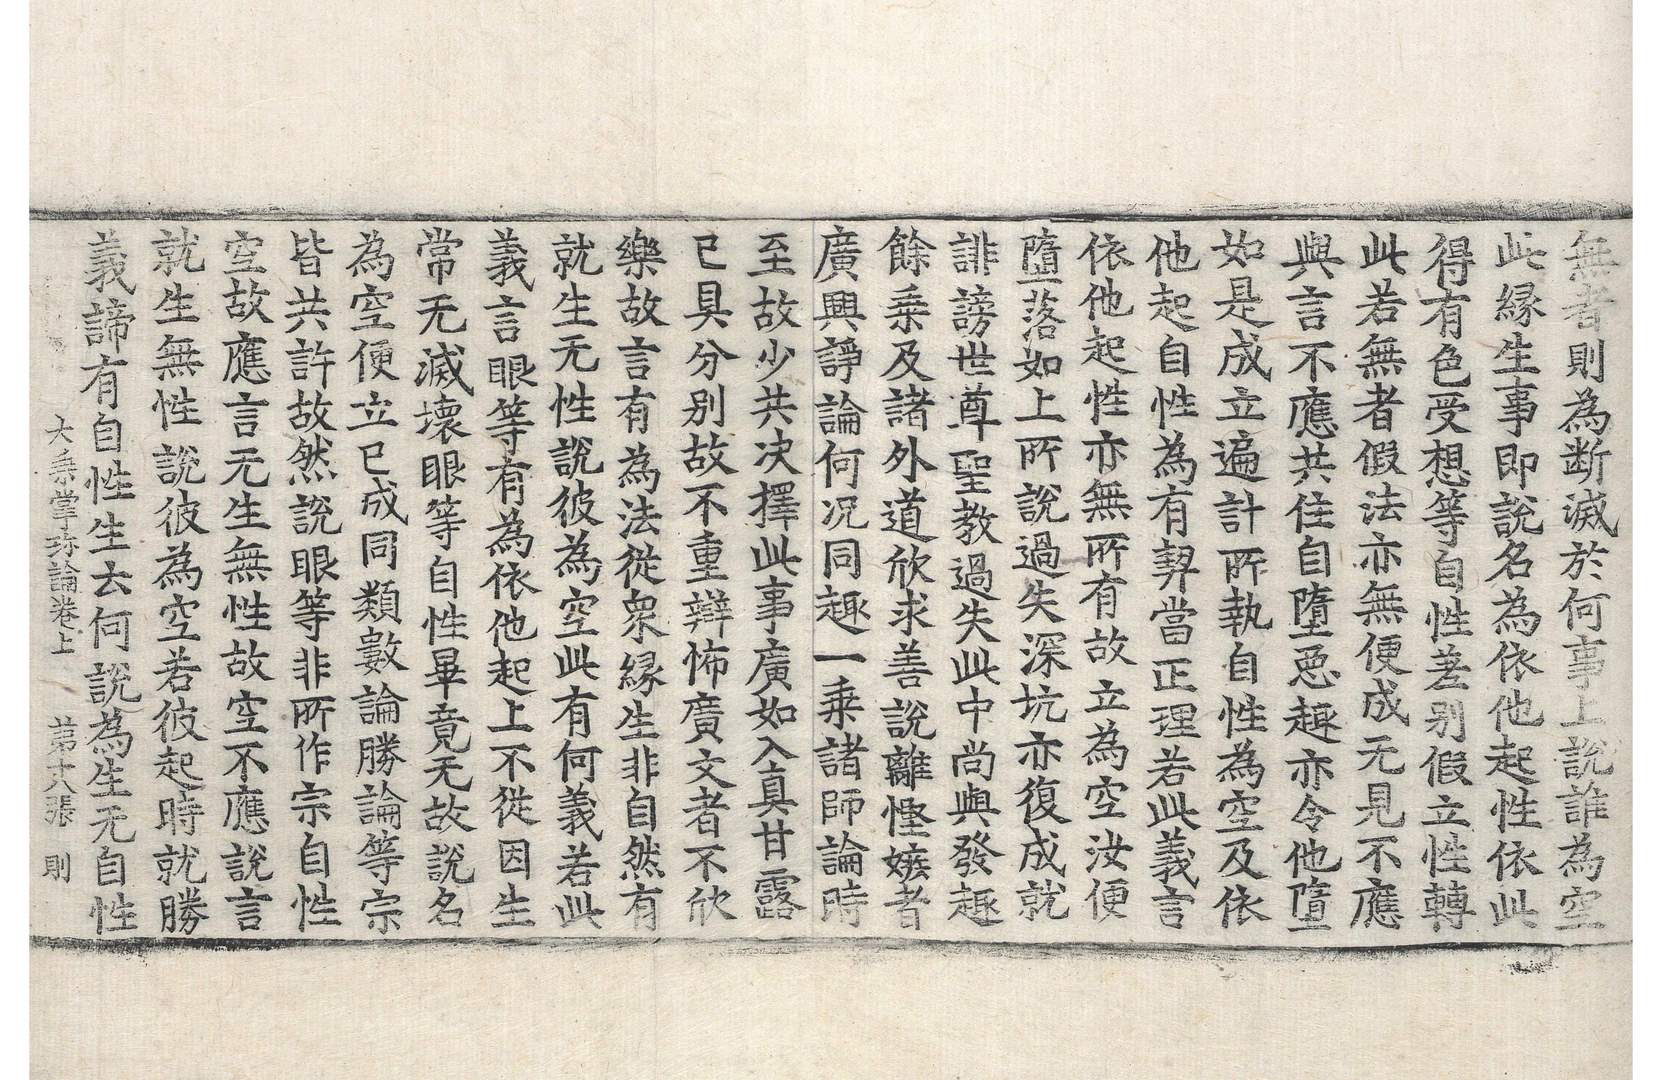 無者則為斷滅於何事上說誰為空
此緣生事即說名為依他起性依此
得有色受想等自性差別假立性轉
此若無者假法亦無便成无見不應
與言不應共住自墮惡趣亦令他墮
如是成立遍計所執自性為空及依
他起自性為有契當正理若此義言
依他起性亦無所有故立為空汝便
墮落如上所說過失深坑亦復成就
誹謗世尊聖教過失此中尚與發趣
餘乘及諸外道欣求善說離慳嫉者
廣興諍論何况同趣一乘諸師論時
至故少共决擇此事廣如入真甘露
已具分別故不重辯怖廣文者不欣
樂故言有為法從衆緣生非自然有
就生无性說彼為空此有何義若此
義言眼等有為依他起上不從因生
常无滅壞眼等自性畢竟无故說名
為空便立已成同類數論勝論等宗
皆共許故然說眼等非所作宗自性
空故應言无生無性故空不應說言
就生無性說彼為空若彼起時就勝
義諦有自性生云何說為生无自性
大乘掌珎論卷上 第十八張 則